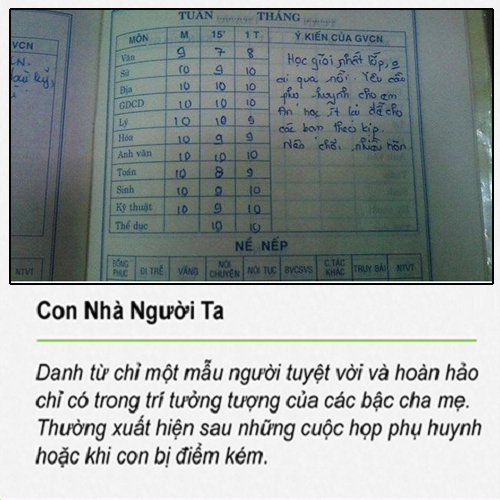 TUẦN THÁNG
VCN
MÔN M 15' 1 T Ý KIẾN CỦA GVCN
Văn 9 7 8
Sử 10 9 10
Địa 10 10 10
GDCD 10 10 10
Lý 10 10 9
Hóa 10 9 9
Anh văn 10 10 10
Toán 10 8 9
Sinh 10 9 10
Kỹ thuật 10 9 10
Thể dục 10 10
Học giỏi nhất lớp, o
ai qua nổi. Yêu cầu
phụ huynh cho em
ăn học ít lại để cho
các bạn theo kịp.
Nên chơi nhiều hơn.
NỀ NẾP
NTVT
ĐỒNG PHỤC ĐI TRỄ VẮNG NÓI CHUYỆN NÓI TỤC BVCSVS C.TÁC KHÁC TRUY BÀI NTVT
Con Nhà Người Ta
Danh từ chỉ một mẫu người tuyệt vời và hoàn hảo
chỉ có trong trí tưởng tượng của các bậc cha mẹ.
Thường xuất hiện sau những cuộc họp phụ huynh
hoặc khi con bị điểm kém.